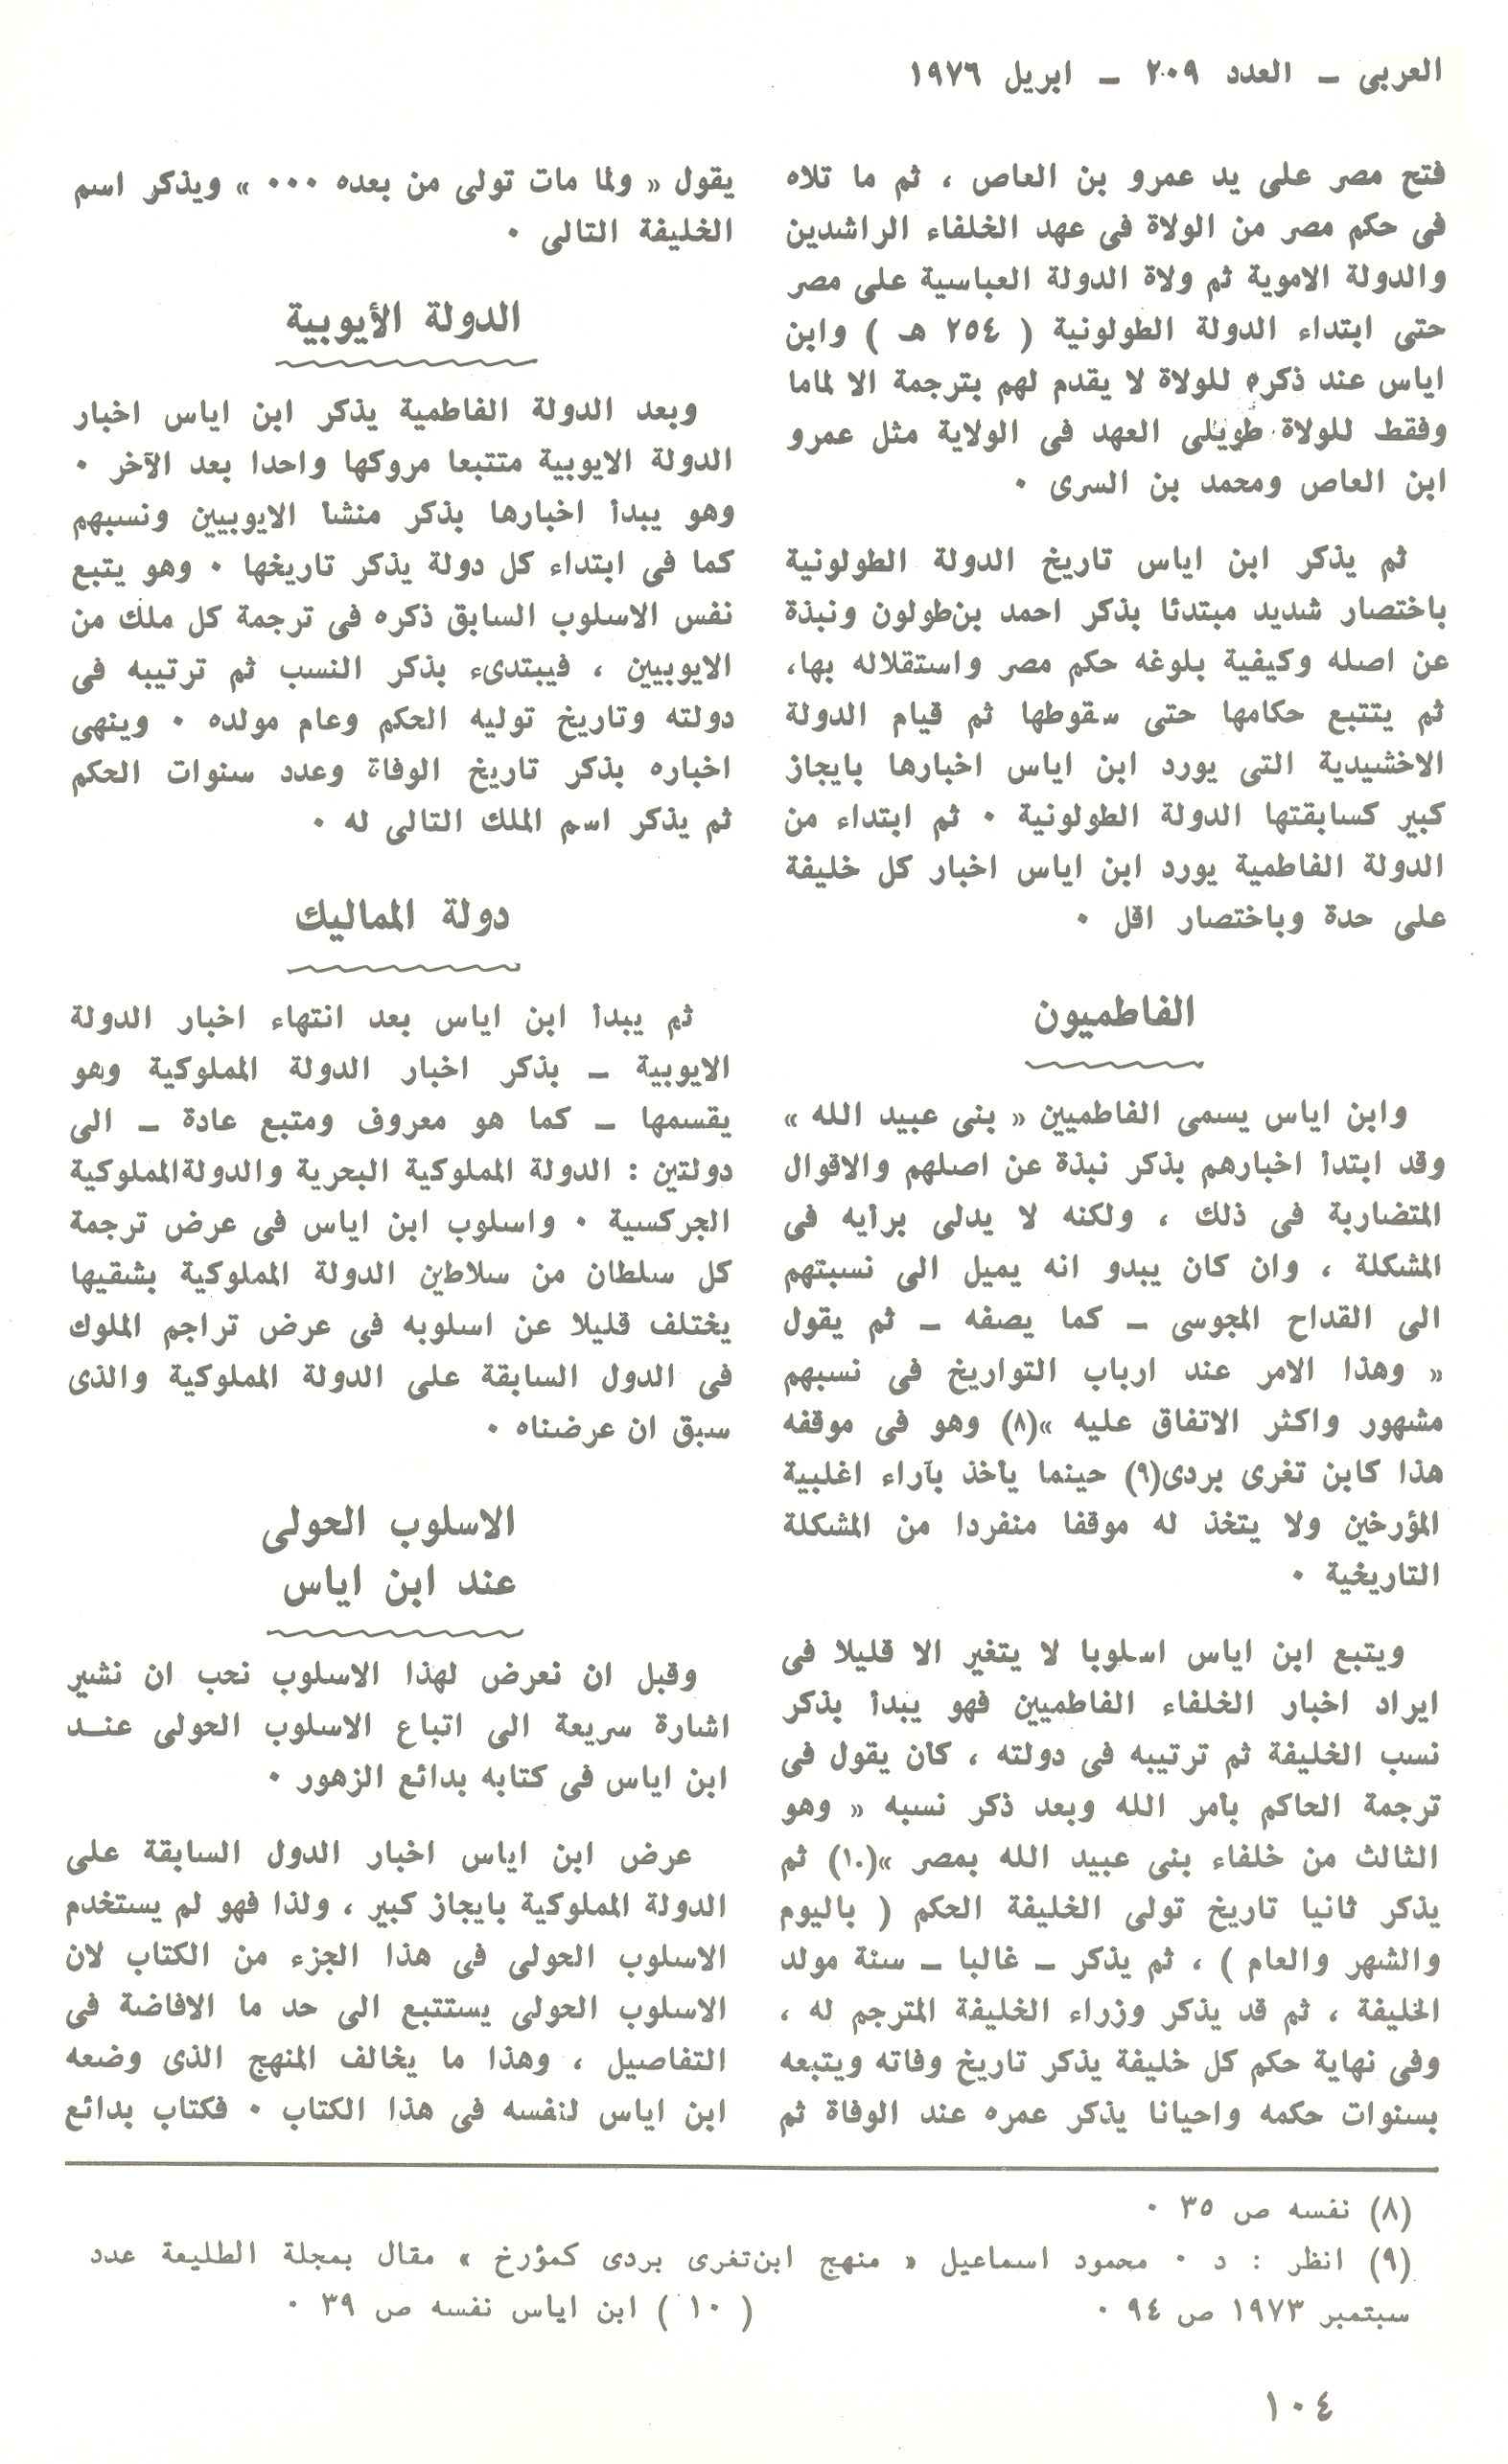 العربى – العدد ٢٠٩ – ابريل ١٩٧٦
فتح مصر على يد عمرو بن العاص ، ثم ما تلاه
فى حكم مصر من الولاة فى عهد الخلفاء الراشدين
والدولة الاموية ثم ولاة الدولة العباسية على مصر
حتى ابتداء الدولة الطولونية ( ٢٥٤ هـ ) وابن
اياس عند ذكره للولاة لا يقدم لهم بترجمة الا لماما
وفقط للولاة طويلى العهد فى الولاية مثل عمرو
ابن العاص ومحمد بن السرى ٠
ثم يذكر ابن اياس تاريخ الدولة الطولونية
باختصار شديد مبتدئا بذكر احمد بن طولون ونبذة
عن اصله وكيفية بلوغه حكم مصر واستقلاله بها،
ثم يتتبع حكامها حتى سقوطها ثم قيام الدولة
الاخشيدية التى يورد ابن اياس اخبارها بايجاز
كبير كسابقتها الدولة الطولونية ٠ ثم ابتداء من
الدولة الفاطمية يورد ابن اياس اخبار كل خليفة
على حدة وباختصار اقل ٠
الفاطميون
وابن اياس يسمى الفاطميين « بنى عبيد الله »
وقد ابتدأ اخبارهم بذكر نبذة عن اصلهم والاقوال
المتضاربة فى ذلك ، ولكنه لا يدلى برأيه فى
المشكلة ، وان كان يبدو انه يميل الى نسبتهم
الى القداح المجوسى – كما يصفه – ثم يقول
« وهذا الامر عند ارباب التواريخ فى نسبهم
مشهور واكثر الاتفاق عليه »(٨) وهو فى موقفه
هذا كابن تغرى بردى(٩) حينما يأخذ بآراء اغلبية
المؤرخين ولا يتخذ له موقفا منفردا من المشكلة
التاريخية ٠
ويتبع ابن اياس اسلوبا لا يتغير الا قليلا فى
ايراد اخبار الخلفاء الفاطميين فهو يبدأ بذكر
نسب الخليفة ثم ترتيبه فى دولته ، كأن يقول فى
ترجمة الحاكم بأمر الله وبعد ذكر نسبه « وهو
الثالث من خلفاء بنى عبيد الله بمصر »(١٠) ثم
يذكر ثانيا تاريخ تولى الخليفة الحكم ( باليوم
والشهر والعام ) ، ثم يذكر – غالبا – سنة مولد
الخليفة ، ثم قد يذكر وزراء الخليفة المترجم له ،
وفى نهاية حكم كل خليفة يذكر تاريخ وفاته ويتبعه
بسنوات حكمه واحيانا يذكر عمره عند الوفاة ثم
يقول « ولما مات تولى من بعده ٠٠٠ » ويذكر اسم
الخليفة التالى ٠
الدولة الأيوبية
وبعد الدولة الفاطمية يذكر ابن اياس اخبار
الدولة الايوبية متتبعا مروكها واحدا بعد الآخر ٠
وهو يبدأ اخبارها بذكر منشأ الايوبيين ونسبهم
كما فى ابتداء كل دولة يذكر تاريخها ٠ وهو يتبع
نفس الاسلوب السابق ذكره فى ترجمة كل ملك من
الايوبيين ، فيبتدىء بذكر النسب ثم ترتيبه فى
دولته وتاريخ توليه الحكم وعام مولده ٠ وينهى
اخباره بذكر تاريخ الوفاة وعدد سنوات الحكم
ثم يذكر اسم الملك التالى له ٠
دولة المماليك
ثم يبدأ ابن اياس بعد انتهاء اخبار الدولة
الايوبية – بذكر اخبار الدولة المملوكية وهو
يقسمها – كما هو معروف ومتبع عادة – الى
دولتين : الدولة المملوكية البحرية والدولة المملوكية
الجركسية ٠ واسلوب ابن اياس فى عرض ترجمة
كل سلطان من سلاطين الدولة المملوكية بشقيها
يختلف قليلا عن اسلوبه فى عرض تراجم الملوك
فى الدول السابقة على الدولة المملوكية والذى
سبق ان عرضناه ٠
الاسلوب الحولى
عند ابن اياس
وقبل ان نعرض لهذا الاسلوب نحب ان نشير
اشارة سريعة الى اتباع الاسلوب الحولى عنـد
ابن اياس فى كتابه بدائع الزهور ٠
عرض ابن اياس اخبار الدول السابقة على
الدولة المملوكية بايجاز كبير ، ولذا فهو لم يستخدم
الاسلوب الحولى فى هذا الجزء من الكتاب لان
الاسلوب الحولى يستتبع الى حد ما الافاضة فى
التفاصيل ، وهذا ما يخالف المنهج الذى وضعه
ابن اياس لنفسه فى هذا الكتاب ٠ فكتاب بدائع
(٨) نفسه ص ٣٥ ٠
(٩) انظر : د ٠ محمود اسماعيل « منهج ابن تغرى بردى كمؤرخ » مقال بمجلة الطليعة عدد
سبتمبر ١٩٧٣ ص ٩٤ ٠ ( ١٠ ) ابن اياس نفسه ص ٣٩ ٠
١٠٤